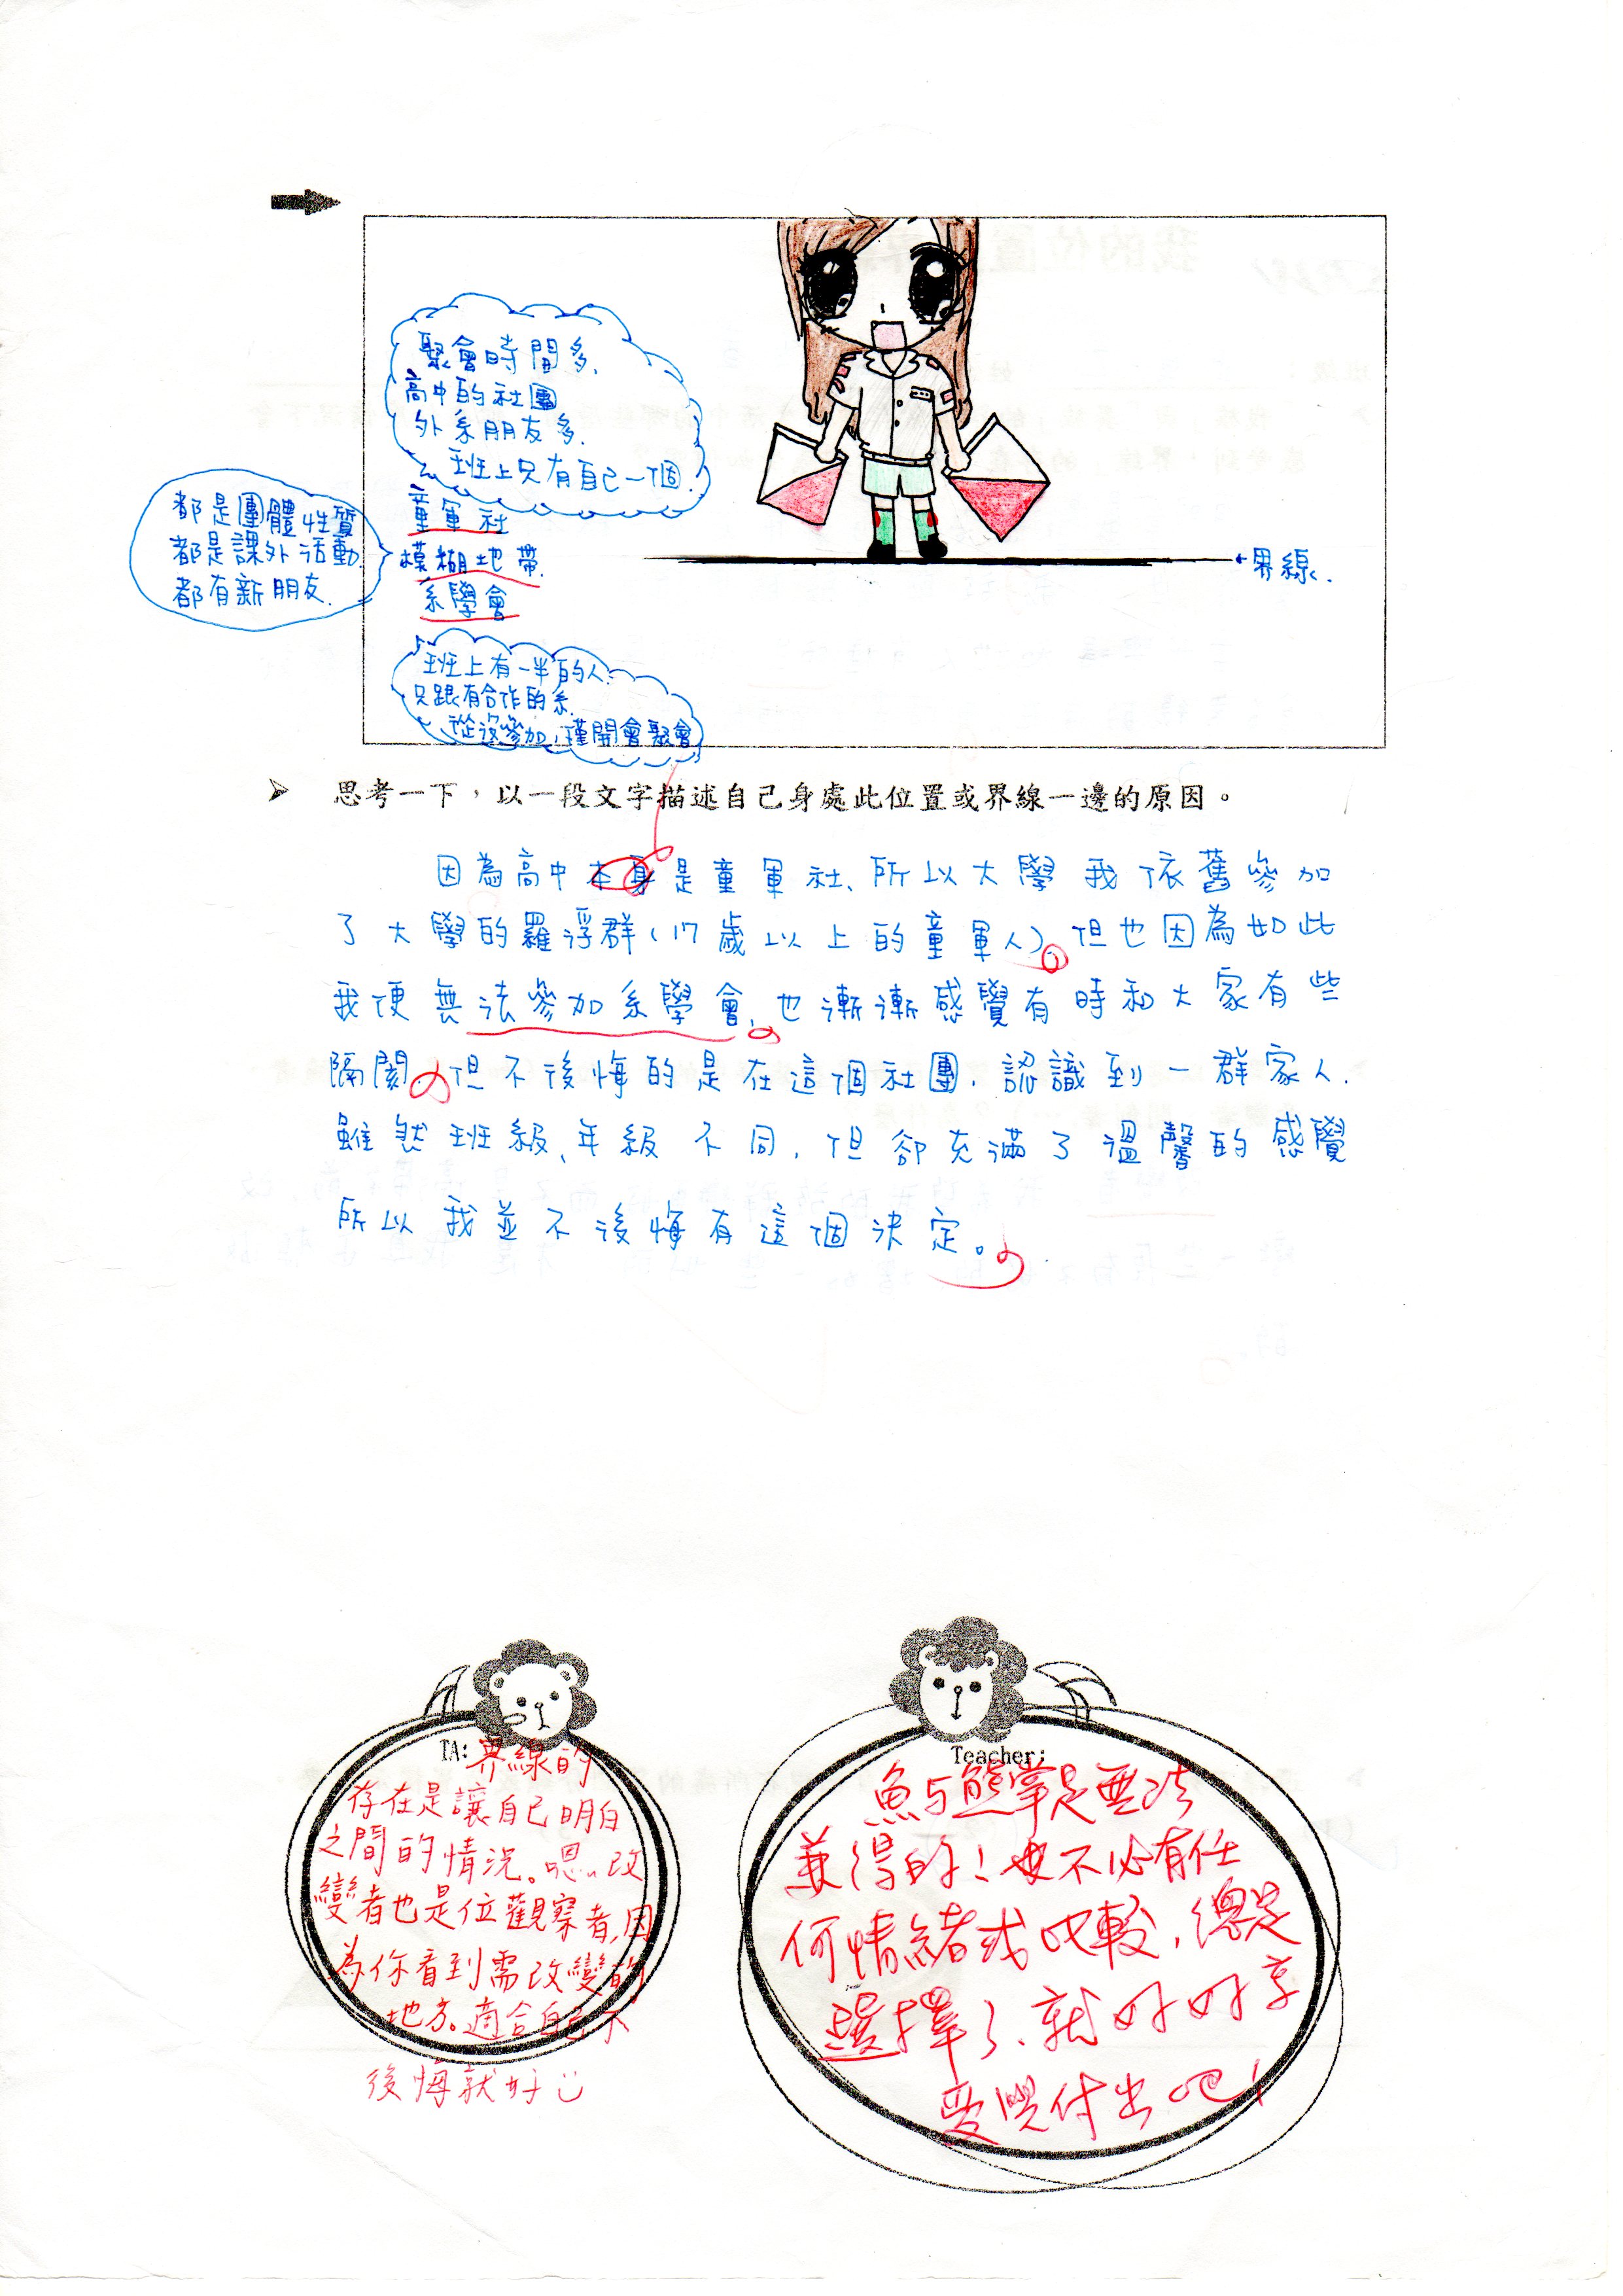 聚會時間多,
高中的社團
外系朋友多.
班上只有自己一個.
都是團體性質
都是課外活動
都有新朋友.
童軍社
模糊地帶.
系學會
界線.
班上有一半的人.
只跟有合作的系.
從沒參加,僅開會聚會
思考一下，以一段文字描述自己身處此位置或界線一邊的原因。
因為高中本身是童軍社、所以大學我依舊參加
了大學的羅浮群(17歲以上的童軍人)。但也因為如此
我便無法參加系學會,也漸漸感覺有時和大家有些
隔閡,但不後悔的是在這個社團,認識到一群家人.
雖然班級、年級不同,但卻充滿了溫馨的感覺
所以我並不後悔有這個決定。
TA:界線的
存在是讓自己明白
之間的情況。嗯..改
變者也是位觀察者,因
為你看到需改變的
地方。適合自己不
後悔就好
Teacher:
魚与熊掌是無法
兼得的!也不必有任
何情緒或比較,總是
選擇了、就好好享
受與付出吧!